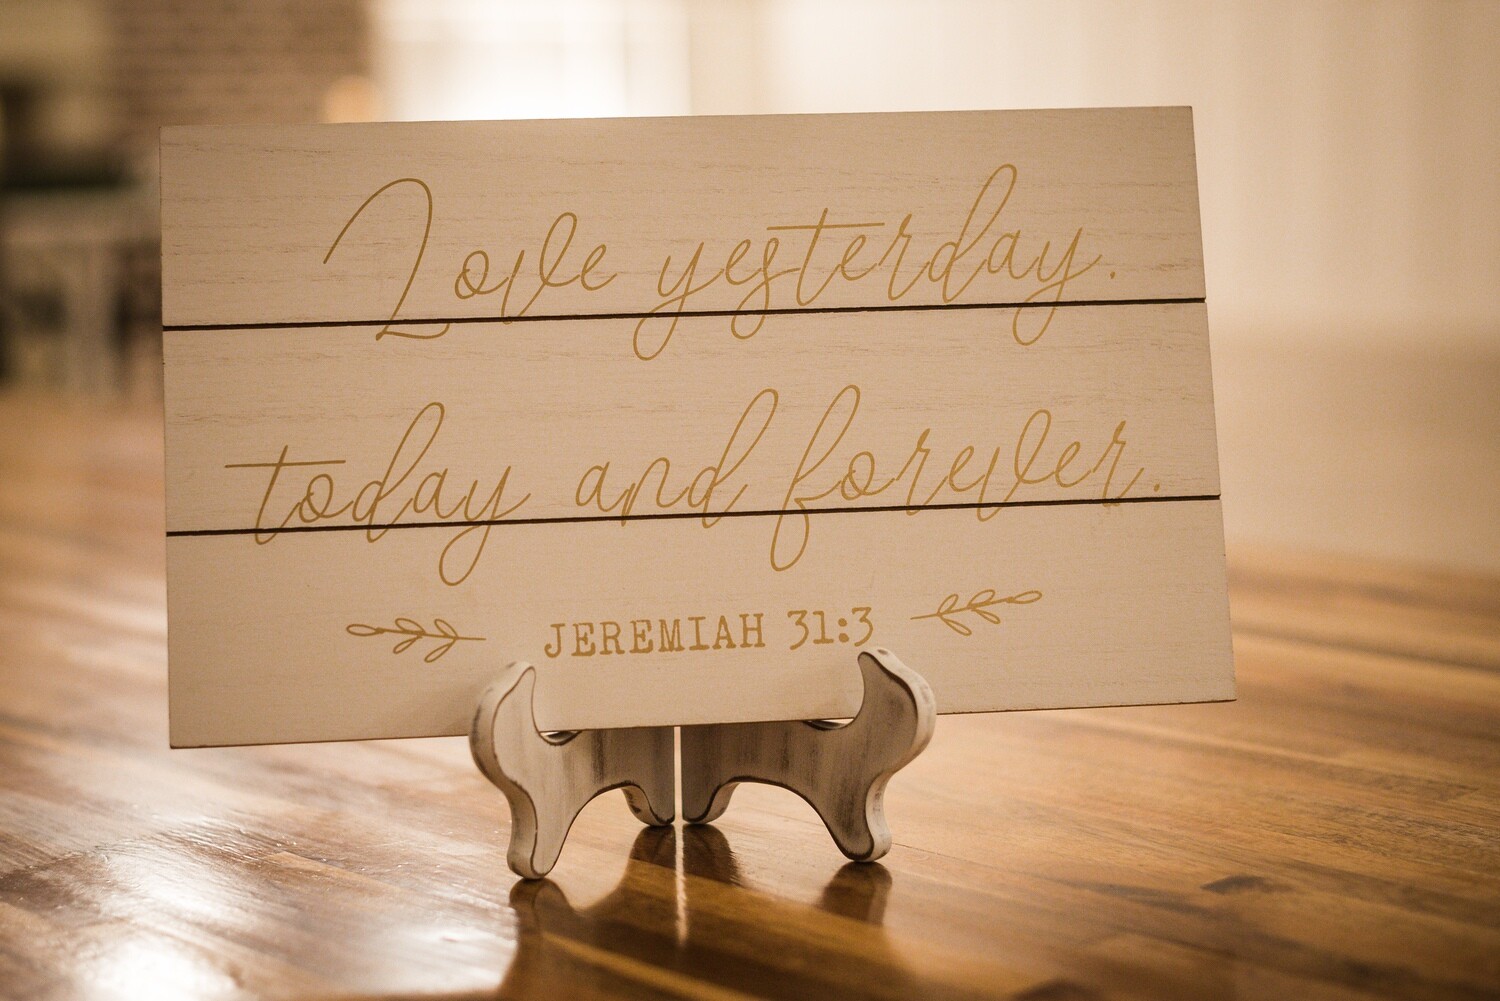 Love yesterday.
today and forever.
JEREMIAH 31:3